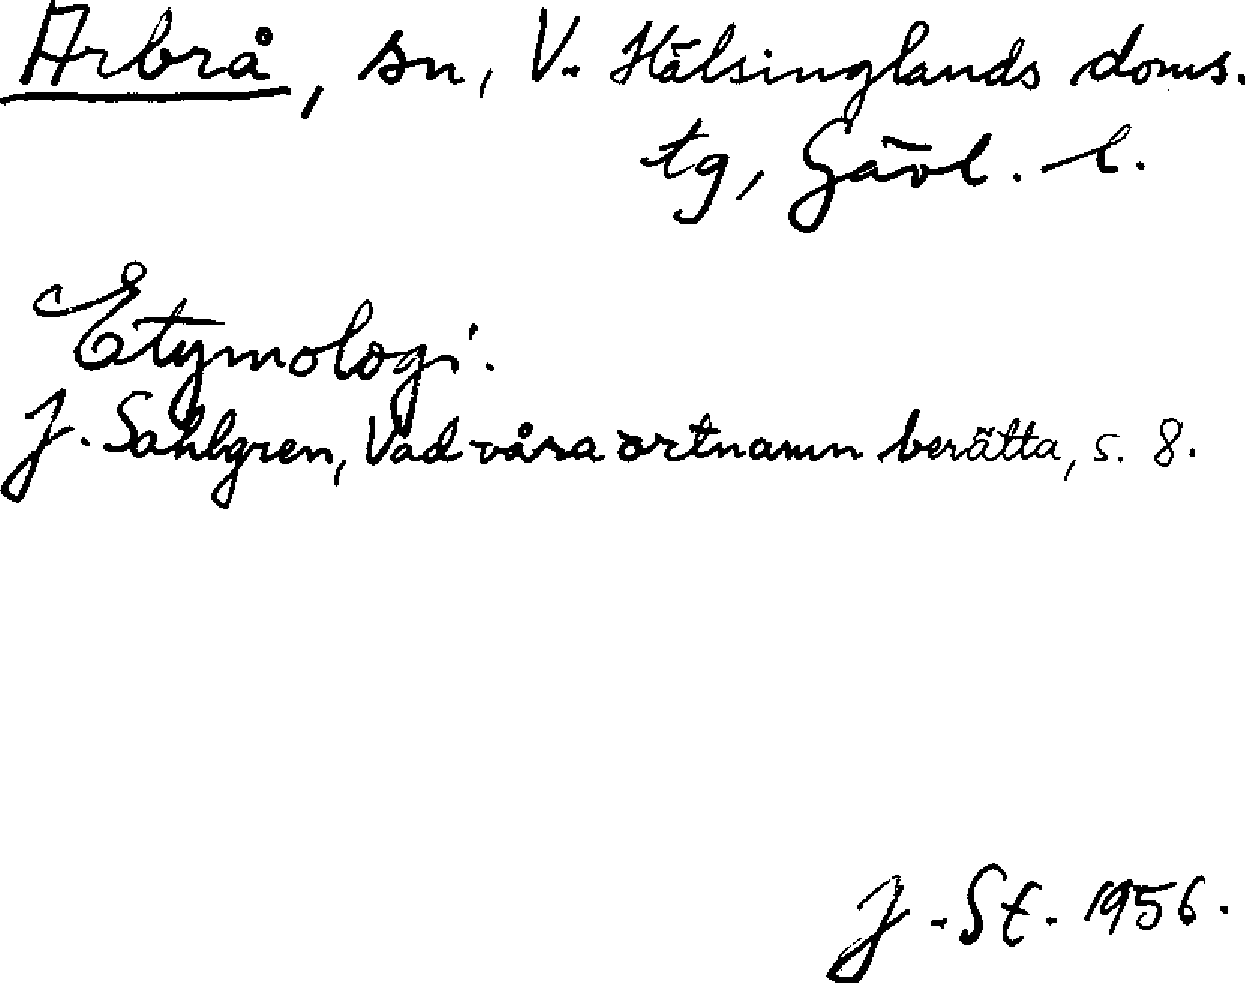 Arbrå, sn, V. Hälsinglands doms.
tg, Gävl. l.
Etymologi.
J. Sahlgren, Vad våra ortnamn berätta, s. 8.
J. St. 1956.